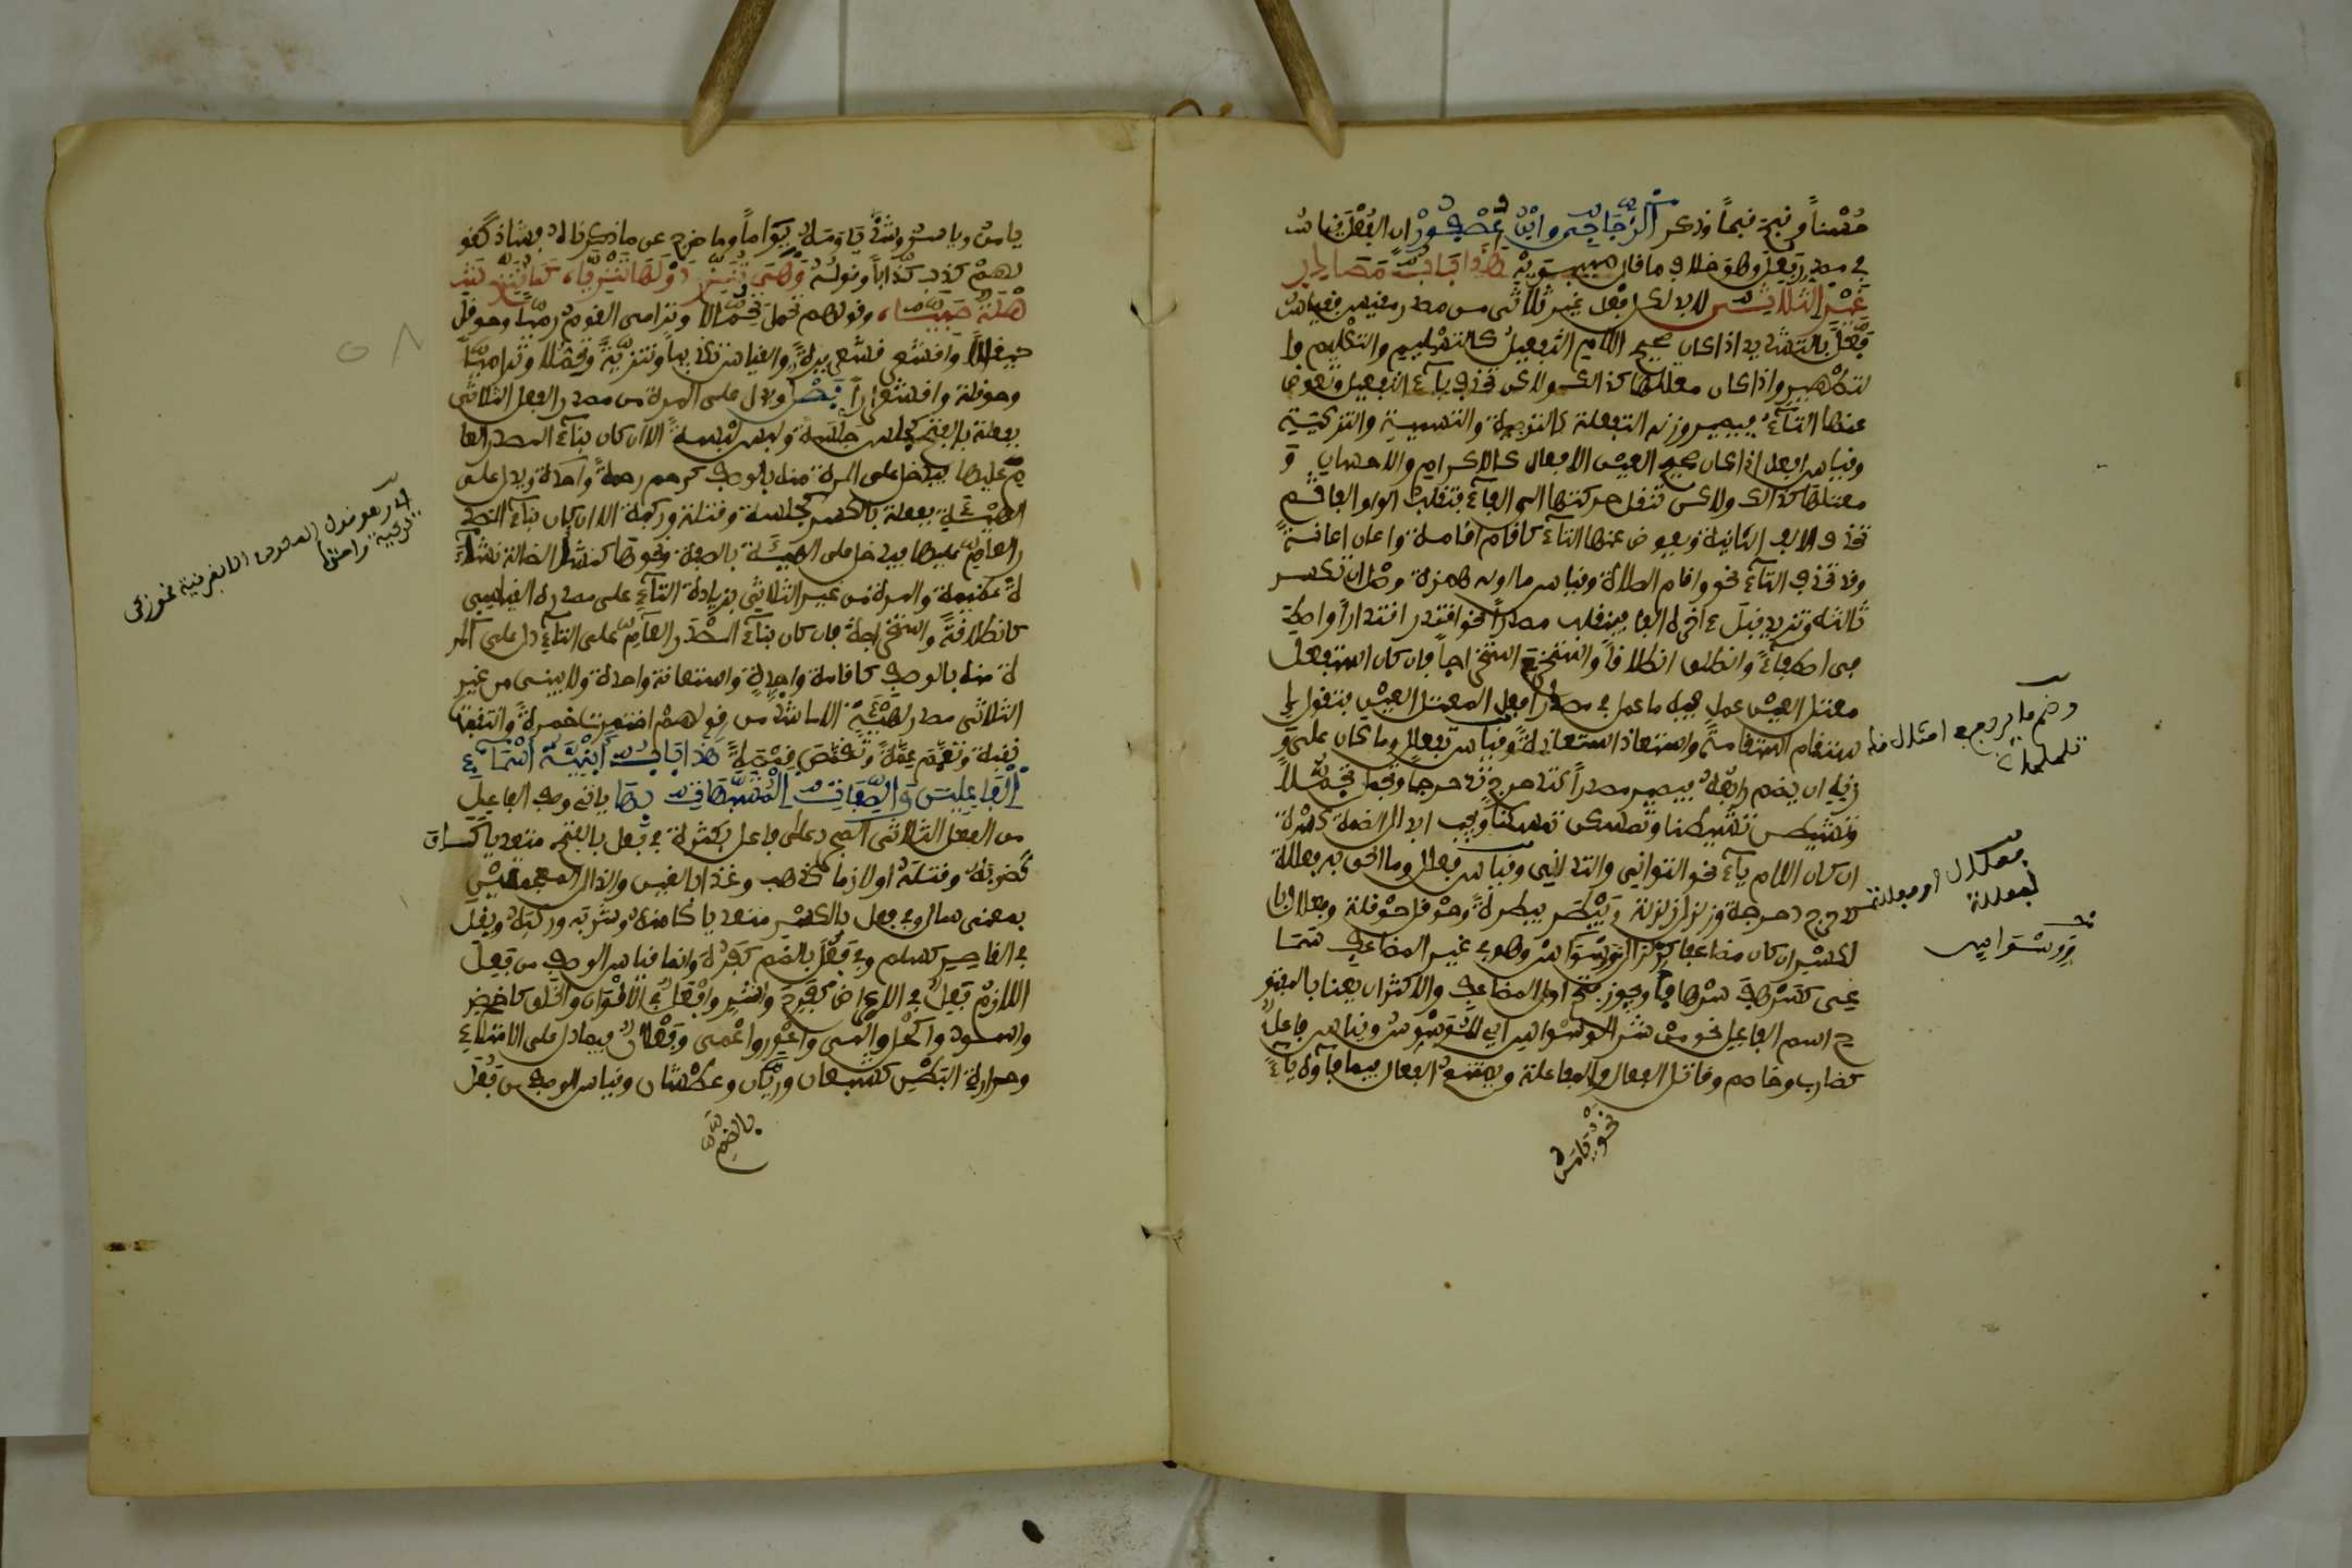 حُسْناً وقبح قبحاً وذكر الزَّجَّاجِي وابْنُ عُصْفُورْ ان الفُعْلَ قياسٌ
في مصدر فَعُلَ وهو خلاف ما قال سيبويْه هَذَا بَابُ مَصَادِرِ
غَيْرِ الثلَاثِيِّ لابد لكل فعل غير ثلاثى من مصدر مقيس فقياسُ
فَعَّلَ بالتشديد اذا كان صحيح اللام التفعيلُ كالتسْليم والتكْليم وا
لتطْهير واذا كان معتلها كذالك ولاكن تحذف ياء التفعيل وتعوض
عنها التاءُ فيصير وزنه التفعلة كالتوصية والتسمية والتزكية
وقياس افعل اذا كان صحيح العين الافعال كالاكرام والاحسان و
معتلها كذالك ولاكن تنقل حركتها الى الفاء فتقلب الواو الفا ثم
تحذف الالف الثانية ويعوض عنها التاء كاقام اقامة واعان اعانةً
وقد تحذف التاء نحو واقام الصلاة وقياس ما اوله همزة وصل ان تكسر
ثالثه وتزيد قبل ءاخره الفا فينقلب مصدراً نحو اقتدر اقتداراً واصطـ
ـفى اصطفاءً وانطلق انطلاقاً واستخرج استخراجاً فان كان استفعل
معتل العين عمل فيه ما عمل في مصدر افعل المعتل العين فتقول ا
ستقام استقامةً واستعاذ استعاذةً وقياس تفعلل وما كان على و
زنه ان يضم رابعُهُ فيصير مصدراً كتدحرج تدحرجا وتجمل تجمُّلاً
وتشيطن تشيطنا وتمسكن تمسكناً ويجب ابدال الضمة كسْرة
ان كان اللام ياءً نحو التوانى والتدانى وقياس فعلل وما الحق به فعللة
كدحرج دحرجة وزلزل زلزلة وبيْطَر بيطرةً وحوْقل حوْقلة وفعلال با
لكسْر ان كان مضاعفا كزلزال ووسْواسْ وهو في غير المضاعف سَمَا
عِى كسَرْهف سرْهافاً ويجوز فتح اول المضاعف والاكثر ان يعنا بالمفتو
ح اسم الفاعل نحو من شر الوسْواس اى الْمُوسْوِسْ وقياس فاعل
كضارب وخاصم وقاتل الفعال والمفاعلة ويمتنع الفعال فيما فاؤه ياءٌ
نحوْ يَامَنَ
وضم ما يربع في امثال قد
تلملما
فعلال او فعللة
لفعللا
وَوسْوَاس
يامن وياسر وشذ ياومه يِوَاماً وما خرج عن ما ذكرناه فشاذ كقو
لهمْ كذب كذّاباً وقولُهُ وَهْىَ تُنَزِّى دَلْوَهَا تَنْزِيَّا كَمَا تُنَزِّى
شَهْلَةٌ صَبِيَّا وقولهم تحمل تِحِمَّالا وترامى القومُ رِمِّيَّا وحوقل
حيقالاً واقشعر قشعريرةً والقياس تكذيباً وتنزيةً وتحمُّلا وتراميا
وحوقلة واقشعراراً فَصْلٌ ويدل على المرة من مصدر الفعل الثلاثى
بفعلة بالفتح كجلس جلْسة ولبس لبْسةً الا ان كان بناء المصدر العا
م عليها فيدل على المرة منه بالوصف كرحم رحمةً واحدة ويدل على
الهيْئَة بفعلة بالكسر كجلسة وقتلة وركبة الا ان كان بناء المصد
ر العام عليها فيدل على الهَيْئَة بالصفة ونحوها كنشد الضالة نشد
ةً عظيمة والمرة من غير الثلاثى بزيادة التاء على مصدره القياسى
كانطلاقةً واستخراجة فان كان بناء المصْدَر العام على التاء دل على المر
ة منه بالوصف كاقامة واحِدةٍ واستعانة واحدة ولا يبنى من غير
الثلاثى مصدر لهَيْئَةٍ الا ما شذ من قولهمْ اختمرت خمرةً وانتقبت
نقبة وتعمّم عِمَّةً وتقمّص قِمْصةً هَذَا بَابُ أَبْنِيَةِ أَسْمَاءِ
الْفَاعِلِينَ وَالصِّفَاتِ الْمُشَبَّهَاتِ بِهَا ياتى وصف الفاعل
من الفعل الثلاثى المجرد على فاعل بكثرة فى فَعَل بالفتح متعديا كان
كضربهُ وقتله او لازما كذهب وغذا بالغين والذال المعجمتيْن
بمعنى سال وفي فعل بالكسْر متعديا كامنه وشربه وركبه ويقل
فى القاصر كسلم وفى فَعُلَ بالضم كفَرُه وانما قياس الوصف من فَعِلَ
اللازمْ فَعِلٌ فى الاعراض كفَرِحَ واشر وافْعَلُ فى الالْوَان والخلق كاخضر
واسود واكْحَل والْمى واعْور واعْمى وفَعْلَان فيما دل على الامتلاء
وحرارة البَطْن كشبعان وريَّان وعطْشان وقياس الوصف من فَعُلَ
بالضمِّ